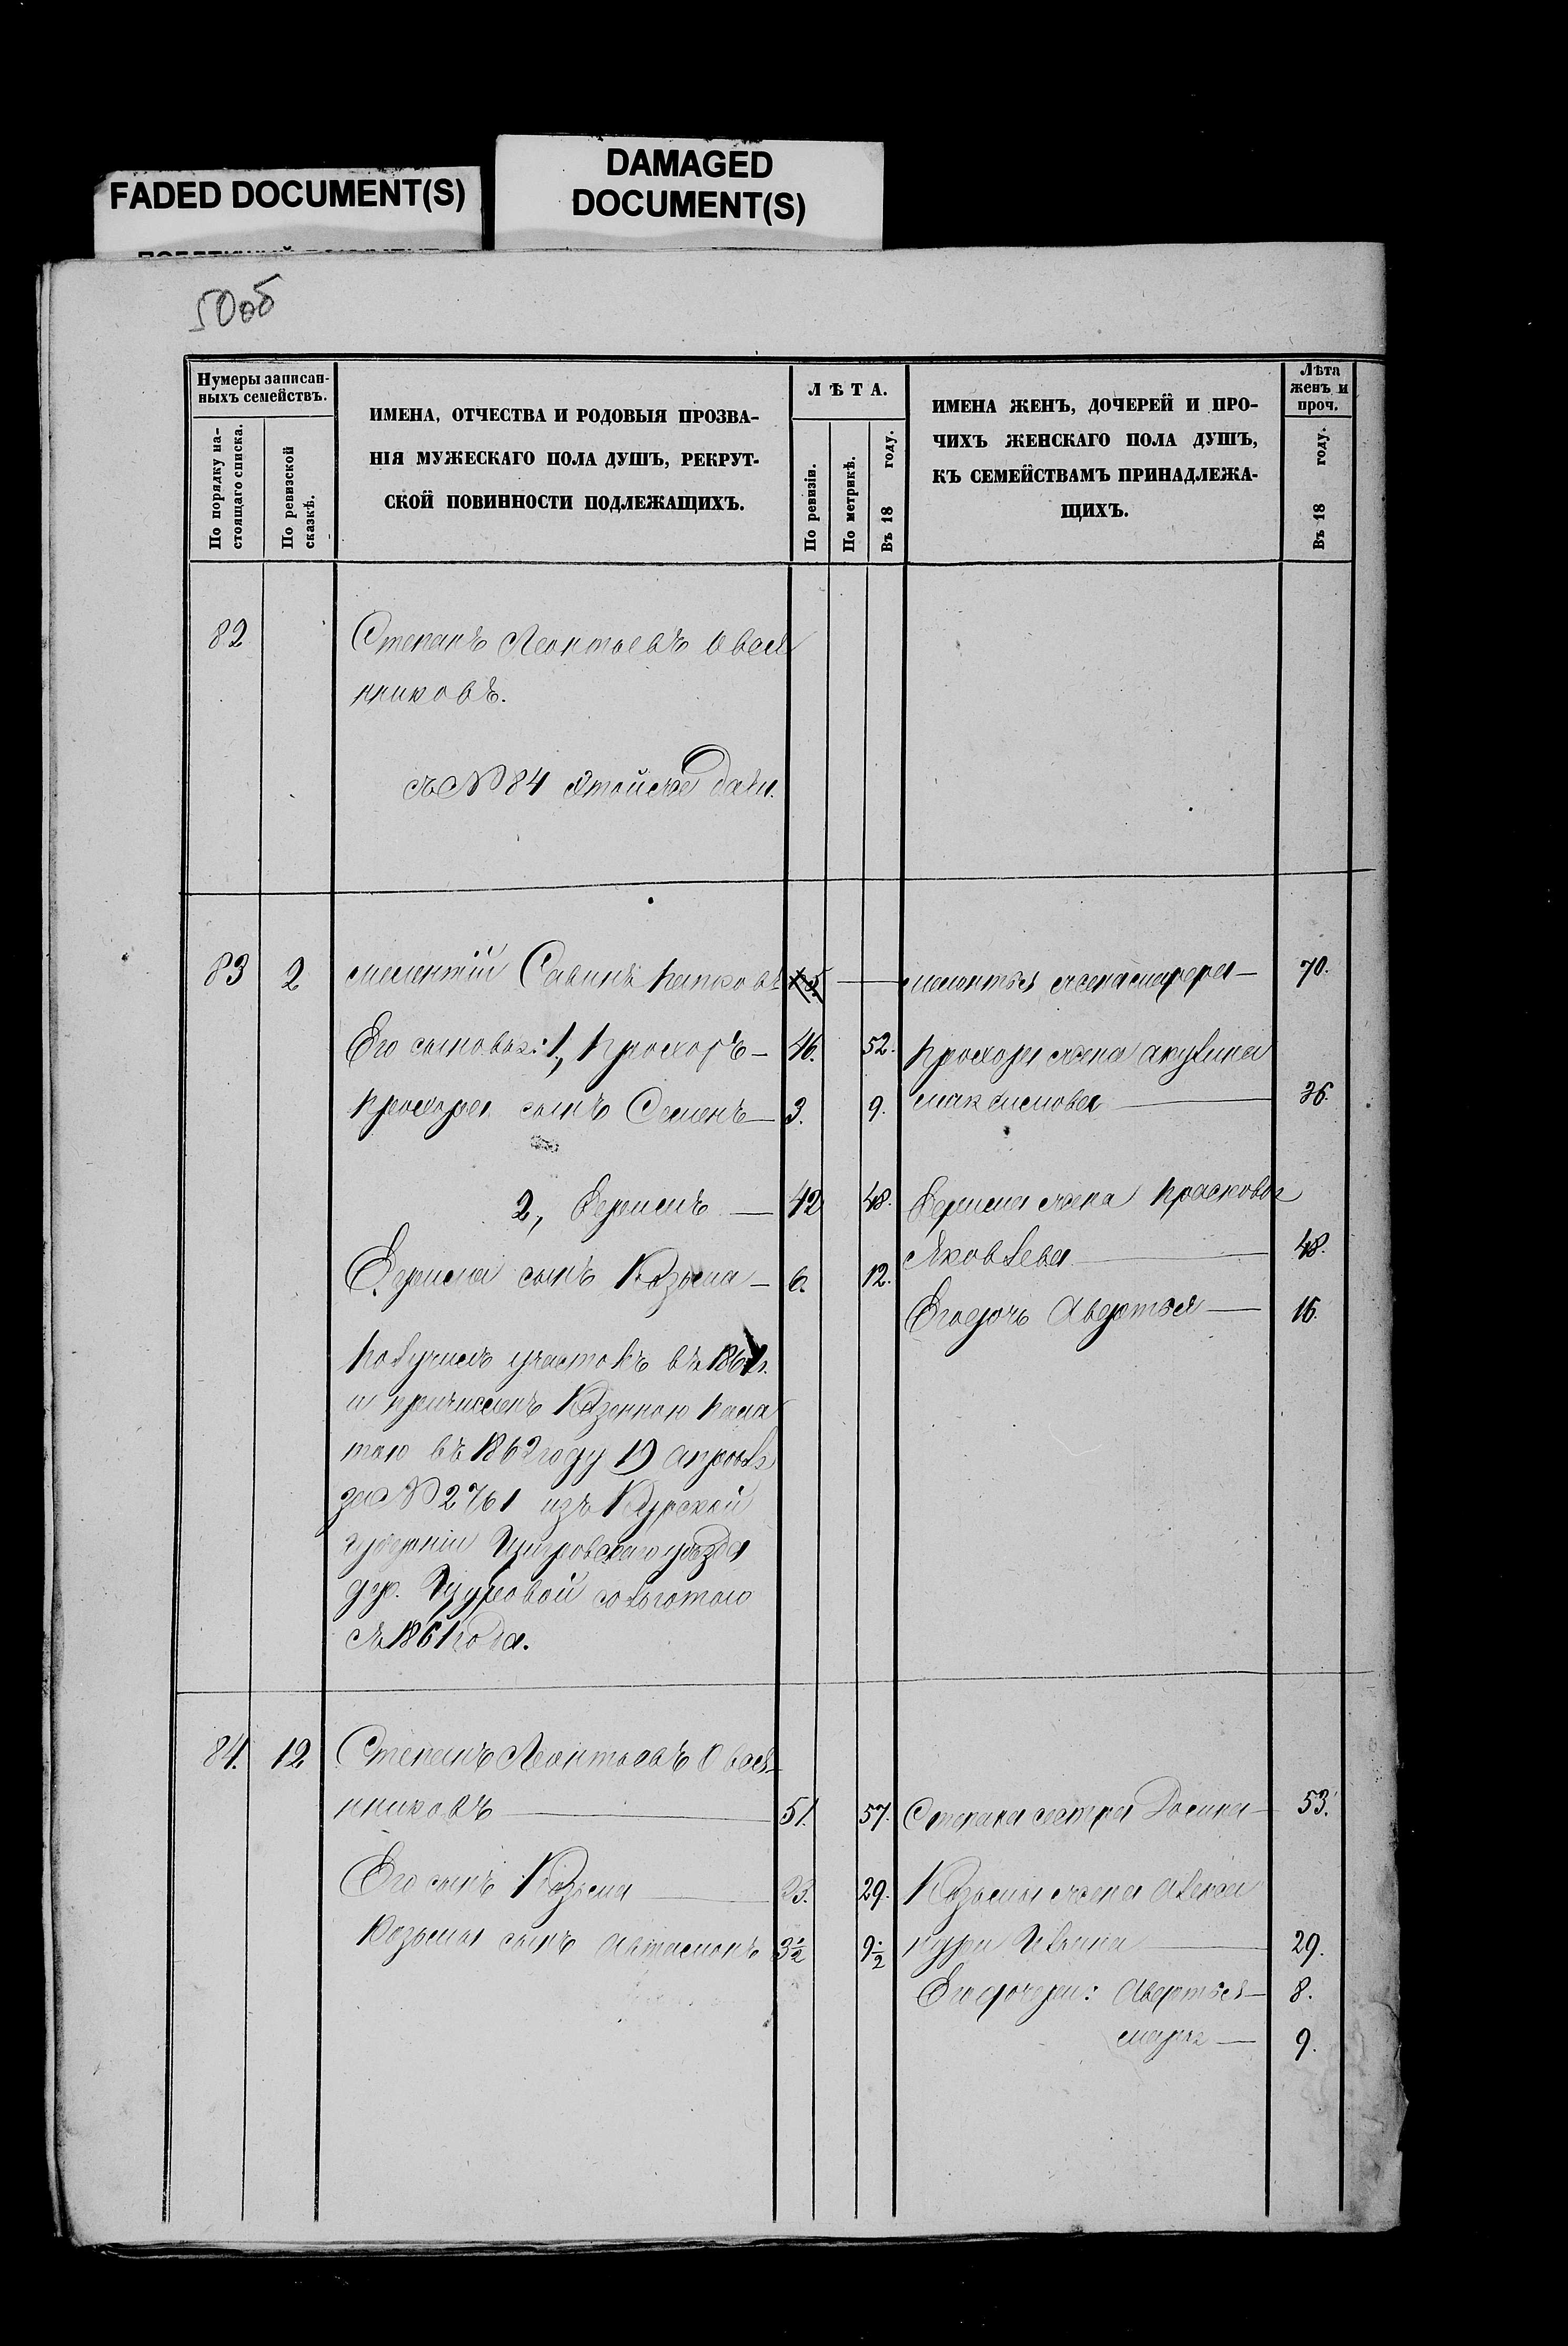 FADED DOCUMENT(S)
DAMAGED
DOCUMENT(S)
50об
Нумеры записан-
ныхъ семействъ.
По порядку на-
стоящаго списка.
По ревизской
сказкѣ.
ИМЕНА, ОТЧЕСТВА И РОДОВЫЯ ПРОЗВА-
НІЯ МУЖЕСКАГО ПОЛА ДУШЪ, РЕКРУТ-
СКОЙ ПОВИННОСТИ ПОДЛЕЖАЩИХЪ.
ЛѢТА.
По ревизіи.
По метрикѣ.
Въ 18 году.
ИМЕНА ЖЕНЪ, ДОЧЕРЕЙ И ПРО-
ЧИХЪ ЖЕНСКАГО ПОЛА ДУШЪ,
КЪ СЕМЕЙСТВАМЪ ПРИНАДЛЕЖА-
ЩИХЪ.
Лѣта
женъ и
проч.
Въ 18 году.
82 Степанъ Леонтьевъ Овся
нниковъ.
съ № 84
83 2 Мелентій Савинъ 70.
Его сыновья: 1, Прохоръ — 46. 52. Прохора жена Акулина
Прохора сынъ Семенъ — 3. 9. Максимова — 36.
2, Ефремъ — 42 48. Ефрема жена Прасковья
Яковлева — 48.
Ефрема сынъ Козьма — 6. 12.
Его дочь Авдотья — 16.
Получилъ участокъ въ
и причисленъ Казенною Пала
тою въ 1862 году 19 апрѣля
за № 2761 изъ Курской
губерніи Щигровскаго уѣзда
дер. со льготою
съ 1861 года.
84. 12 Степанъ Леонтьевъ Овся-
нниковъ — 51. 57. Степана сестра — 53.
Его сынъ Козьма — 23. 29. Козьмы жена Алекса
Козьмы сынъ Автамонъ 3½ 9½ ндра — 29.
Его дочери: Авдотья — 8.
Марья — 9.